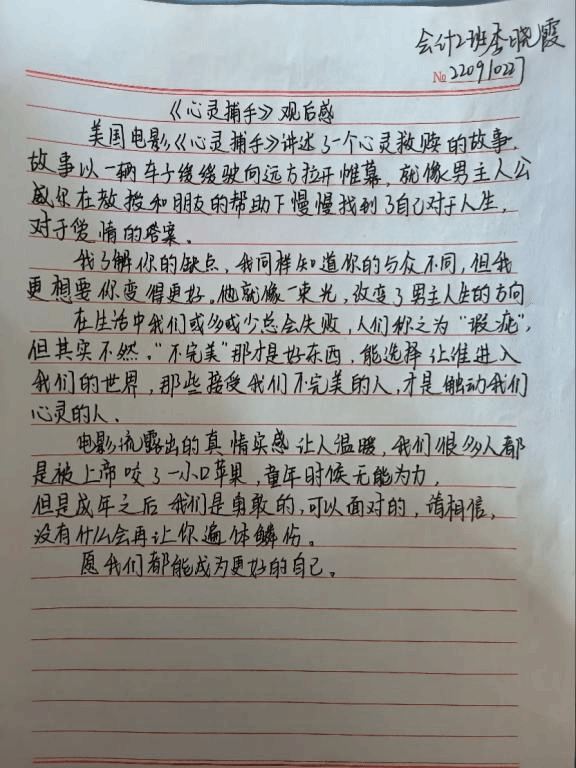 会计2班李晓霞
№220910227
《心灵捕手》观后感
美国电影《心灵捕手》讲述了一个心灵救赎的故事.
故事以一辆车子缓缓驶向远方拉开帷幕,就像男主人公
威尔在教授和朋友的帮助下慢慢找到了自己对于人生,
对于爱情的答案。
我了解你的缺点,我同样知道你的与众不同,但我
更想要你变得更好,他就像一束光,改变了男主人生的方向
在生活中我们或多或少总会失败,人们称之为“瑕疵”,
但其实不然。“不完美”那才是好东西,能选择让谁进入
我们的世界,那些接受我们不完美的人,才是触动我们
心灵的人.
电影流露出的真情实感让人温暖,我们很多人都
是被上帝咬了一小口苹果,童年时候无能为力,
但是成年之后我们是勇敢的,可以面对的,请相信,
没有什么会再让你遍体鳞伤。
愿我们都能成为更好的自己。